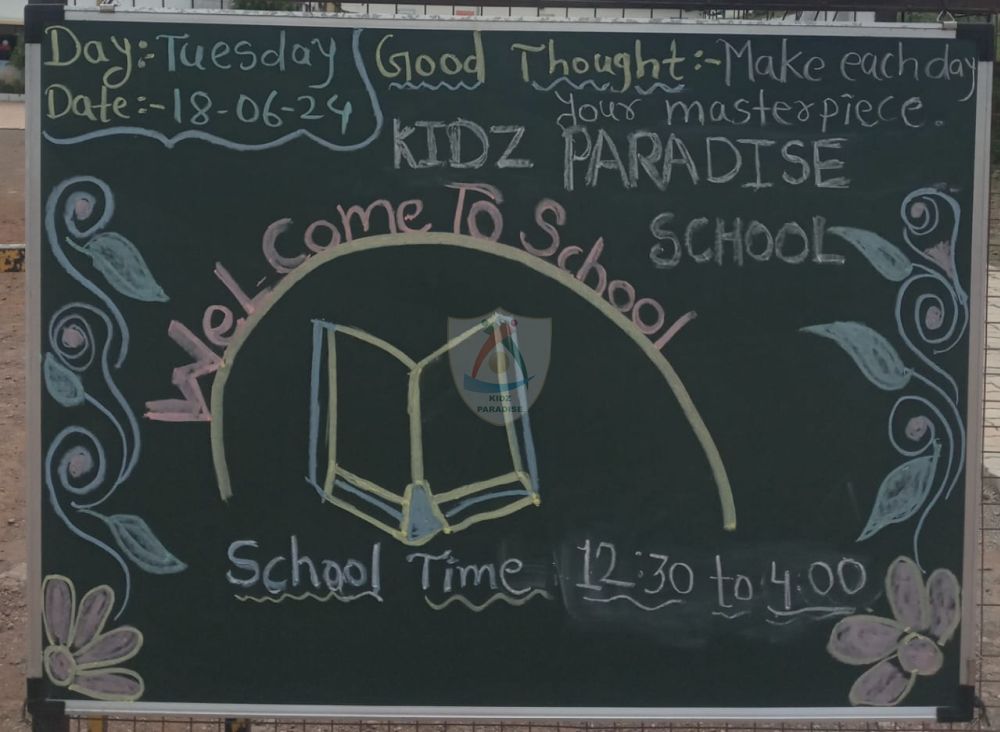 Day:- Tuesday
Date:- 18-06-24
Good Thought:- Make each day
your masterpiece.
KIDZ PARADISE
SCHOOL
Wel-Come To School
KIDZ
PARADISE
School Time 12:30 to 4:00